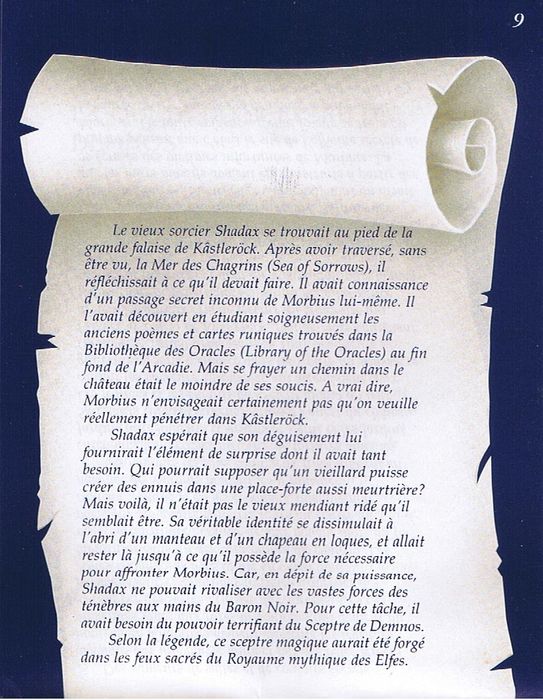 9
Le vieux sorcier Shadax se trouvait au pied de la
grande falaise de Kâstleröck. Après avoir traversé, sans
être vu, la Mer des Chagrins (Sea of Sorrows), il
réfléchissait à ce qu'il devait faire. Il avait connaissance
d'un passage secret inconnu de Morbius lui-même. Il
l'avait découvert en étudiant soigneusement les
anciens poèmes et cartes runiques trouvés dans la
Bibliothèque des Oracles (Library of the Oracles) au fin
fond de l'Arcadie. Mais se frayer un chemin dans le
château était le moindre de ses soucis. A vrai dire,
Morbius n'envisageait certainement pas qu'on veuille
réellement pénétrer dans Kâstleröck.
Shadax espérait que son déguisement lui
fournirait l'élément de surprise dont il avait tant
besoin. Qui pourrait supposer qu'un vieillard puisse
créer des ennuis dans une place-forte aussi meurtrière?
Mais voilà, il n'était pas le vieux mendiant ridé qu'il
semblait être. Sa véritable identité se dissimulait à
l'abri d'un manteau et d'un chapeau en loques, et allait
rester là jusqu'à ce qu'il possède la force nécessaire
pour affronter Morbius. Car, en dépit de sa puissance,
Shadax ne pouvait rivaliser avec les vastes forces des
ténèbres aux mains du Baron Noir. Pour cette tâche, il
avait besoin du pouvoir terrifiant du Sceptre de Demnos.
Selon la légende, ce sceptre magique aurait été forgé
dans les feux sacrés du Royaume mythique des Elfes.